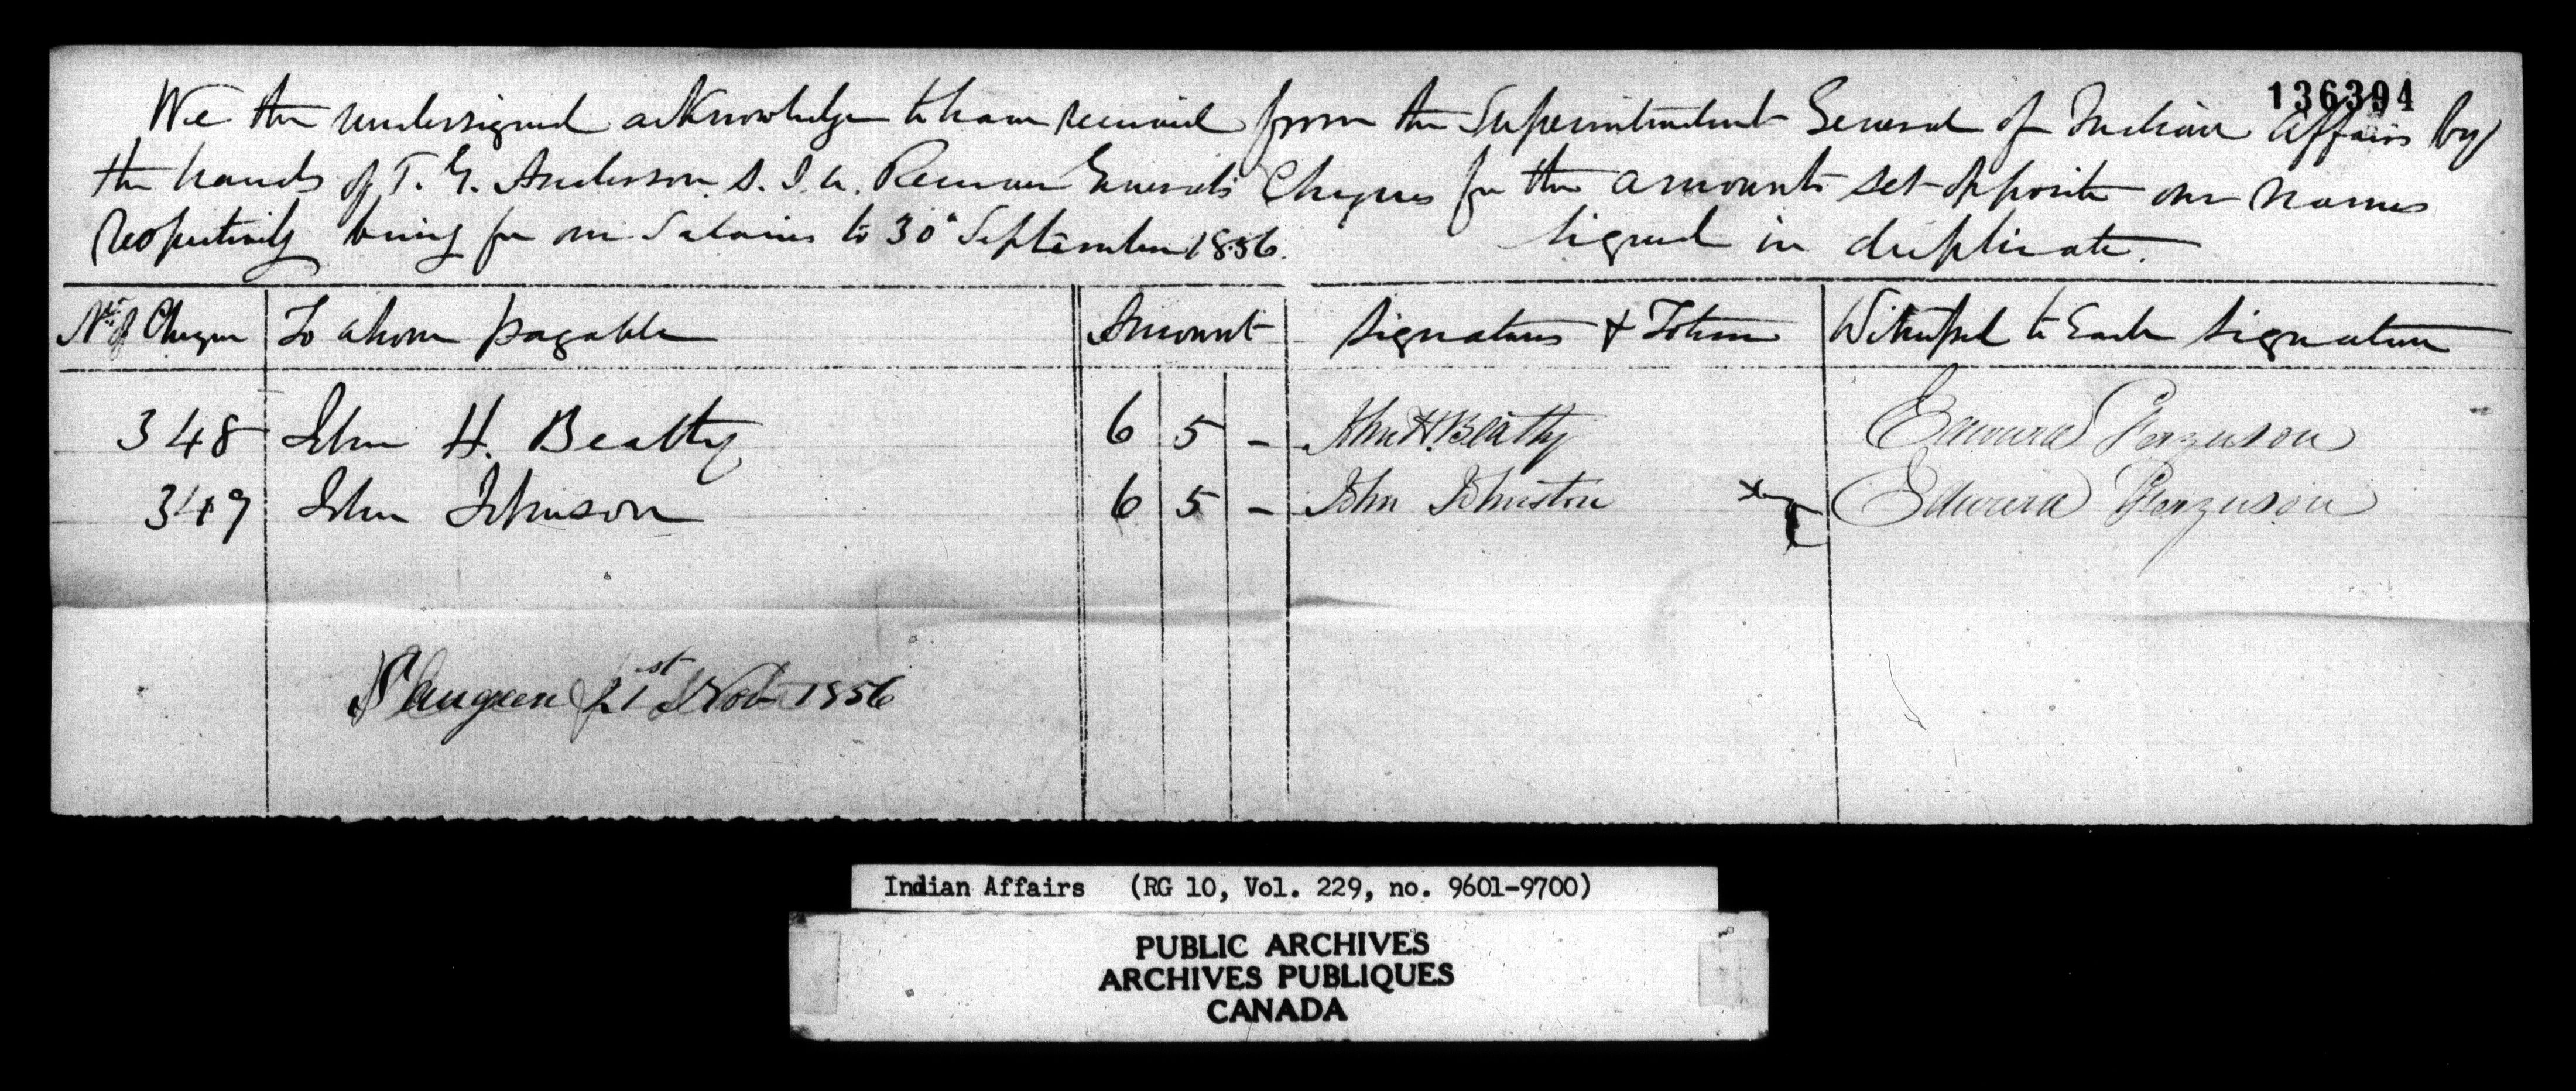 136394
We the undersigned acknowledge to have received from the Superintendent General of Indian Affairs by
the hands of T. G. Anderson S. I. A. Receiver Generals Cheques for the amounts set opposite our names
respectively being for our Salaries to 30th September 1856. Signed in duplicate.
No. of Cheque To whom payable Amount Signatures & Totem Witnessed to Each Signature
348 John H. Beatty 6 5 - John H. Beatty Edward Ferguson
349 John Johnson 6 5 - John Johnston Edward Ferguson
Saugeen 21st Nov 1856
Indian Affairs (RG 10, Vol. 229, no. 9601-9700)
PUBLIC ARCHIVES
ARCHIVES PUBLIQUES
CANADA